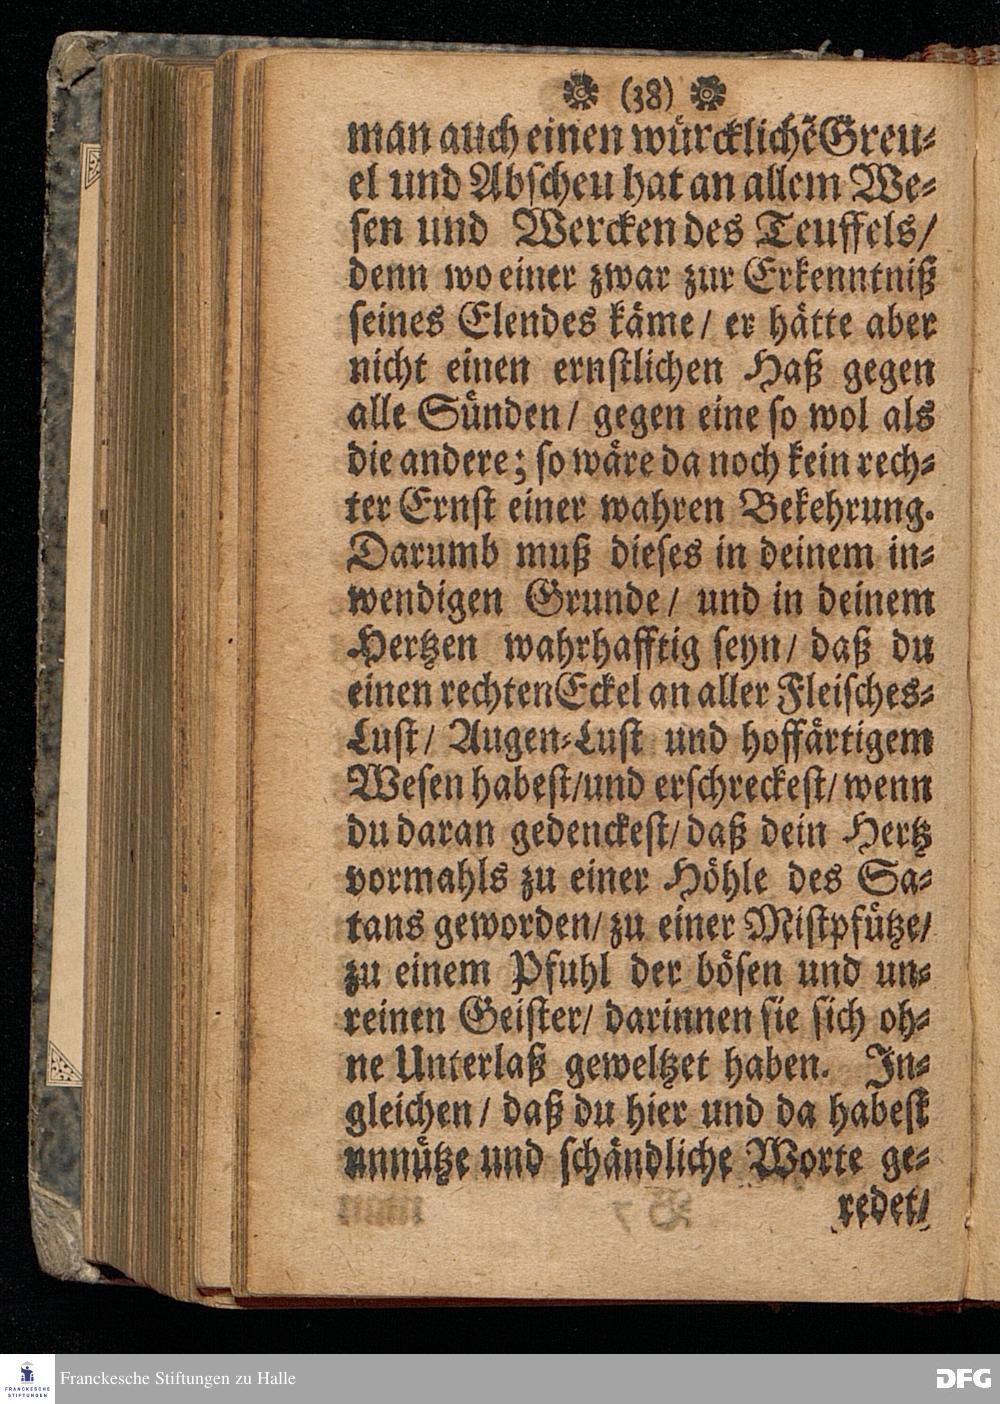 (38)
man auch einen würcklichẽ Greu-
el und Abscheu hat an allem We-
sen und Wercken des Teuffels/
denn wo einer zwar zur Erkenntniß
seines Elendes käme/ er hätte aber
nicht einen ernstlichen Haß gegen
alle Sünden/ gegen eine so wol als
die andere; so wäre da noch kein rech-
ter Ernst einer wahren Bekehrung.
Darumb muß dieses in deinem in-
wendigen Grunde/ und in deinem
Hertzen wahrhafftig seyn/ daß du
einen rechten Eckel an aller Fleisches-
Lust/ Augen-Lust und hoffärtigem
Wesen habest/ und erschreckest/ wenn
du daran gedenckest/ daß dein Hertz
vormahls zu einer Höhle des Sa-
tans geworden/ zu einer Mistpfütze/
zu einem Pfuhl der bösen und un-
reinen Geister/ darinnen sie sich oh-
ne Unterlaß geweltzet haben. In-
gleichen/ daß du hier und da habest
unnütze und schändliche Worte ge-
redet/
FRANCKESCHE STIFTUNGEN
Franckesche Stiftungen zu Halle
DFG